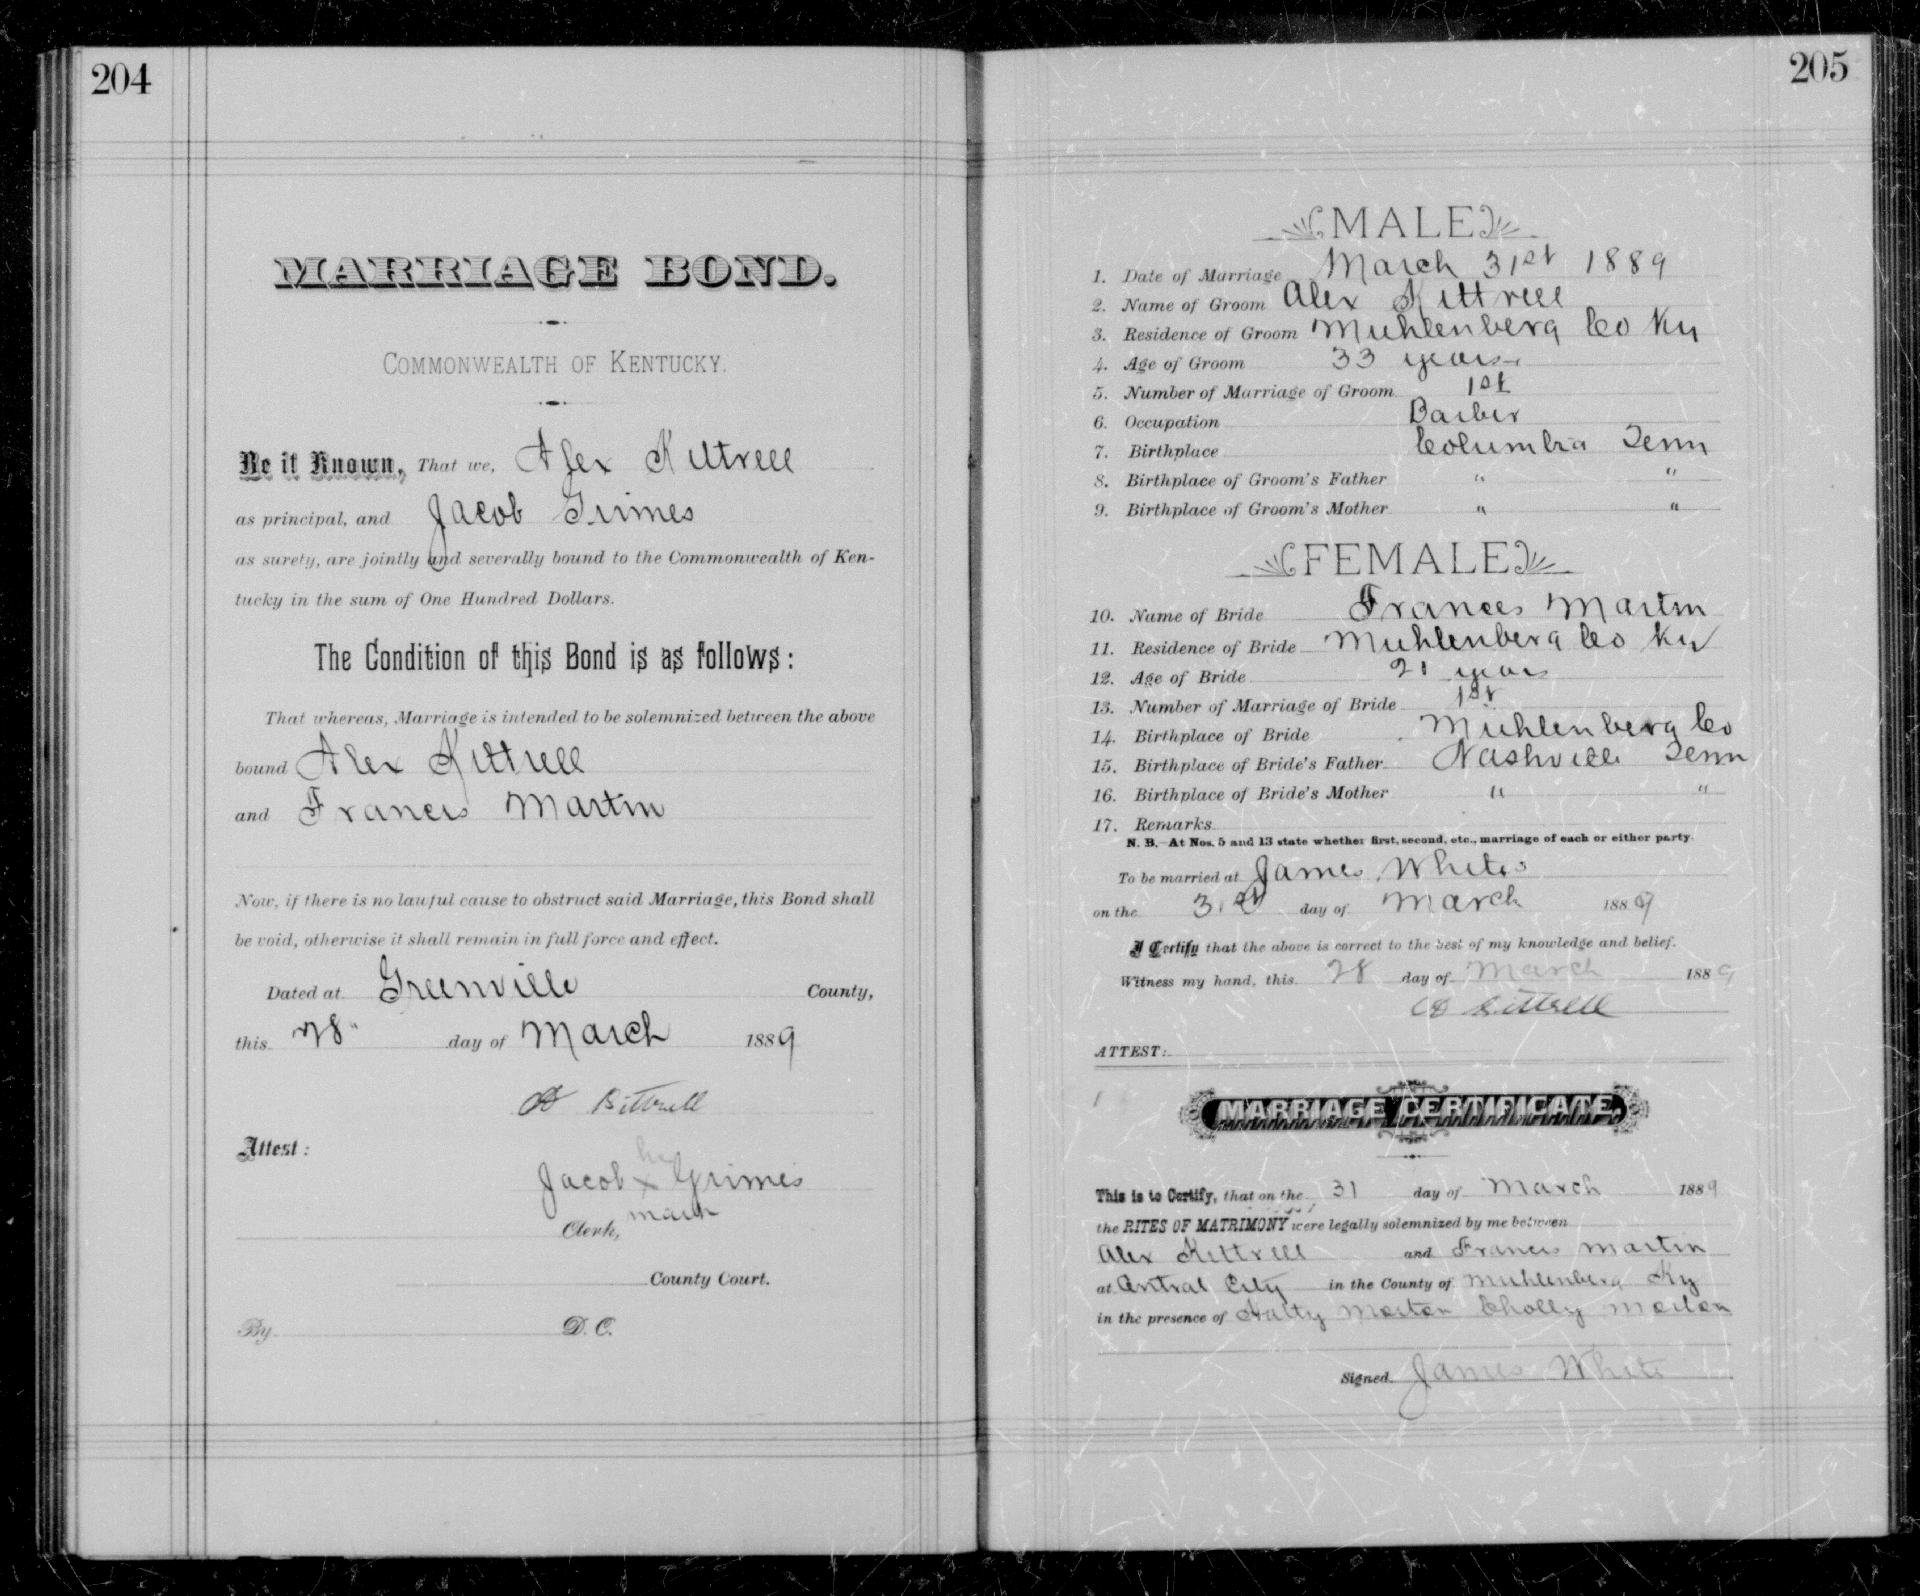 204
MARRIAGE BOND.
COMMONWEALTH OF KENTUCKY.
Be it Known, That we, Alex Kittrell
as principal, and Jacob Grimes
as surety, are jointly and severally bound to the Commonwealth of Ken-
tucky in the sum of One Hundred Dollars.
The Condition of this Bond is as follows:
That whereas, Marriage is intended to be solemnized between the above
bound Alex Kittrell
and Frances Martin
Now, if there is no lawful cause to obstruct said Marriage, this Bond shall
be void, otherwise it shall remain in full force and effect.
Dated at Greenville County,
this 28" day of March 1889
Kittrell
Attest:
his
Jacob x Grimes
mark
Clerk,
County Court.
By D. C.
205
MALE
1. Date of Marriage March 31st 1889
2. Name of Groom Alex Kittrell
3. Residence of Groom Muhlenberg Co Ky
4. Age of Groom 33 years
5. Number of Marriage of Groom 1st
6. Occupation Barber
7. Birthplace Columbia Tenn
8. Birthplace of Groom's Father " "
9. Birthplace of Groom's Mother " "
FEMALE
10. Name of Bride Frances Martin
11. Residence of Bride Muhlenberg Co Ky
12. Age of Bride 21 years
13. Number of Marriage of Bride 1st
14. Birthplace of Bride Muhlenberg Co
15. Birthplace of Bride's Father Nashville Tenn
16. Birthplace of Bride's Mother " "
17. Remarks
N. B.—At Nos. 5 and 13 state whether first, second, etc., marriage of each or either party.
To be married at James Whites
on the 31st day of March 1889
I Certify that the above is correct to the best of my knowledge and belief.
Witness my hand, this 28 day of March 1889
Kittrell
ATTEST:
MARRIAGE CERTIFICATE.
This is to Certify, that on the 31 day of March 1889
the RITES OF MATRIMONY were legally solemnized by me between
Alex Kittrell and Frances Martin
at Central City in the County of Muhlenberg Ky
in the presence of
Signed James White